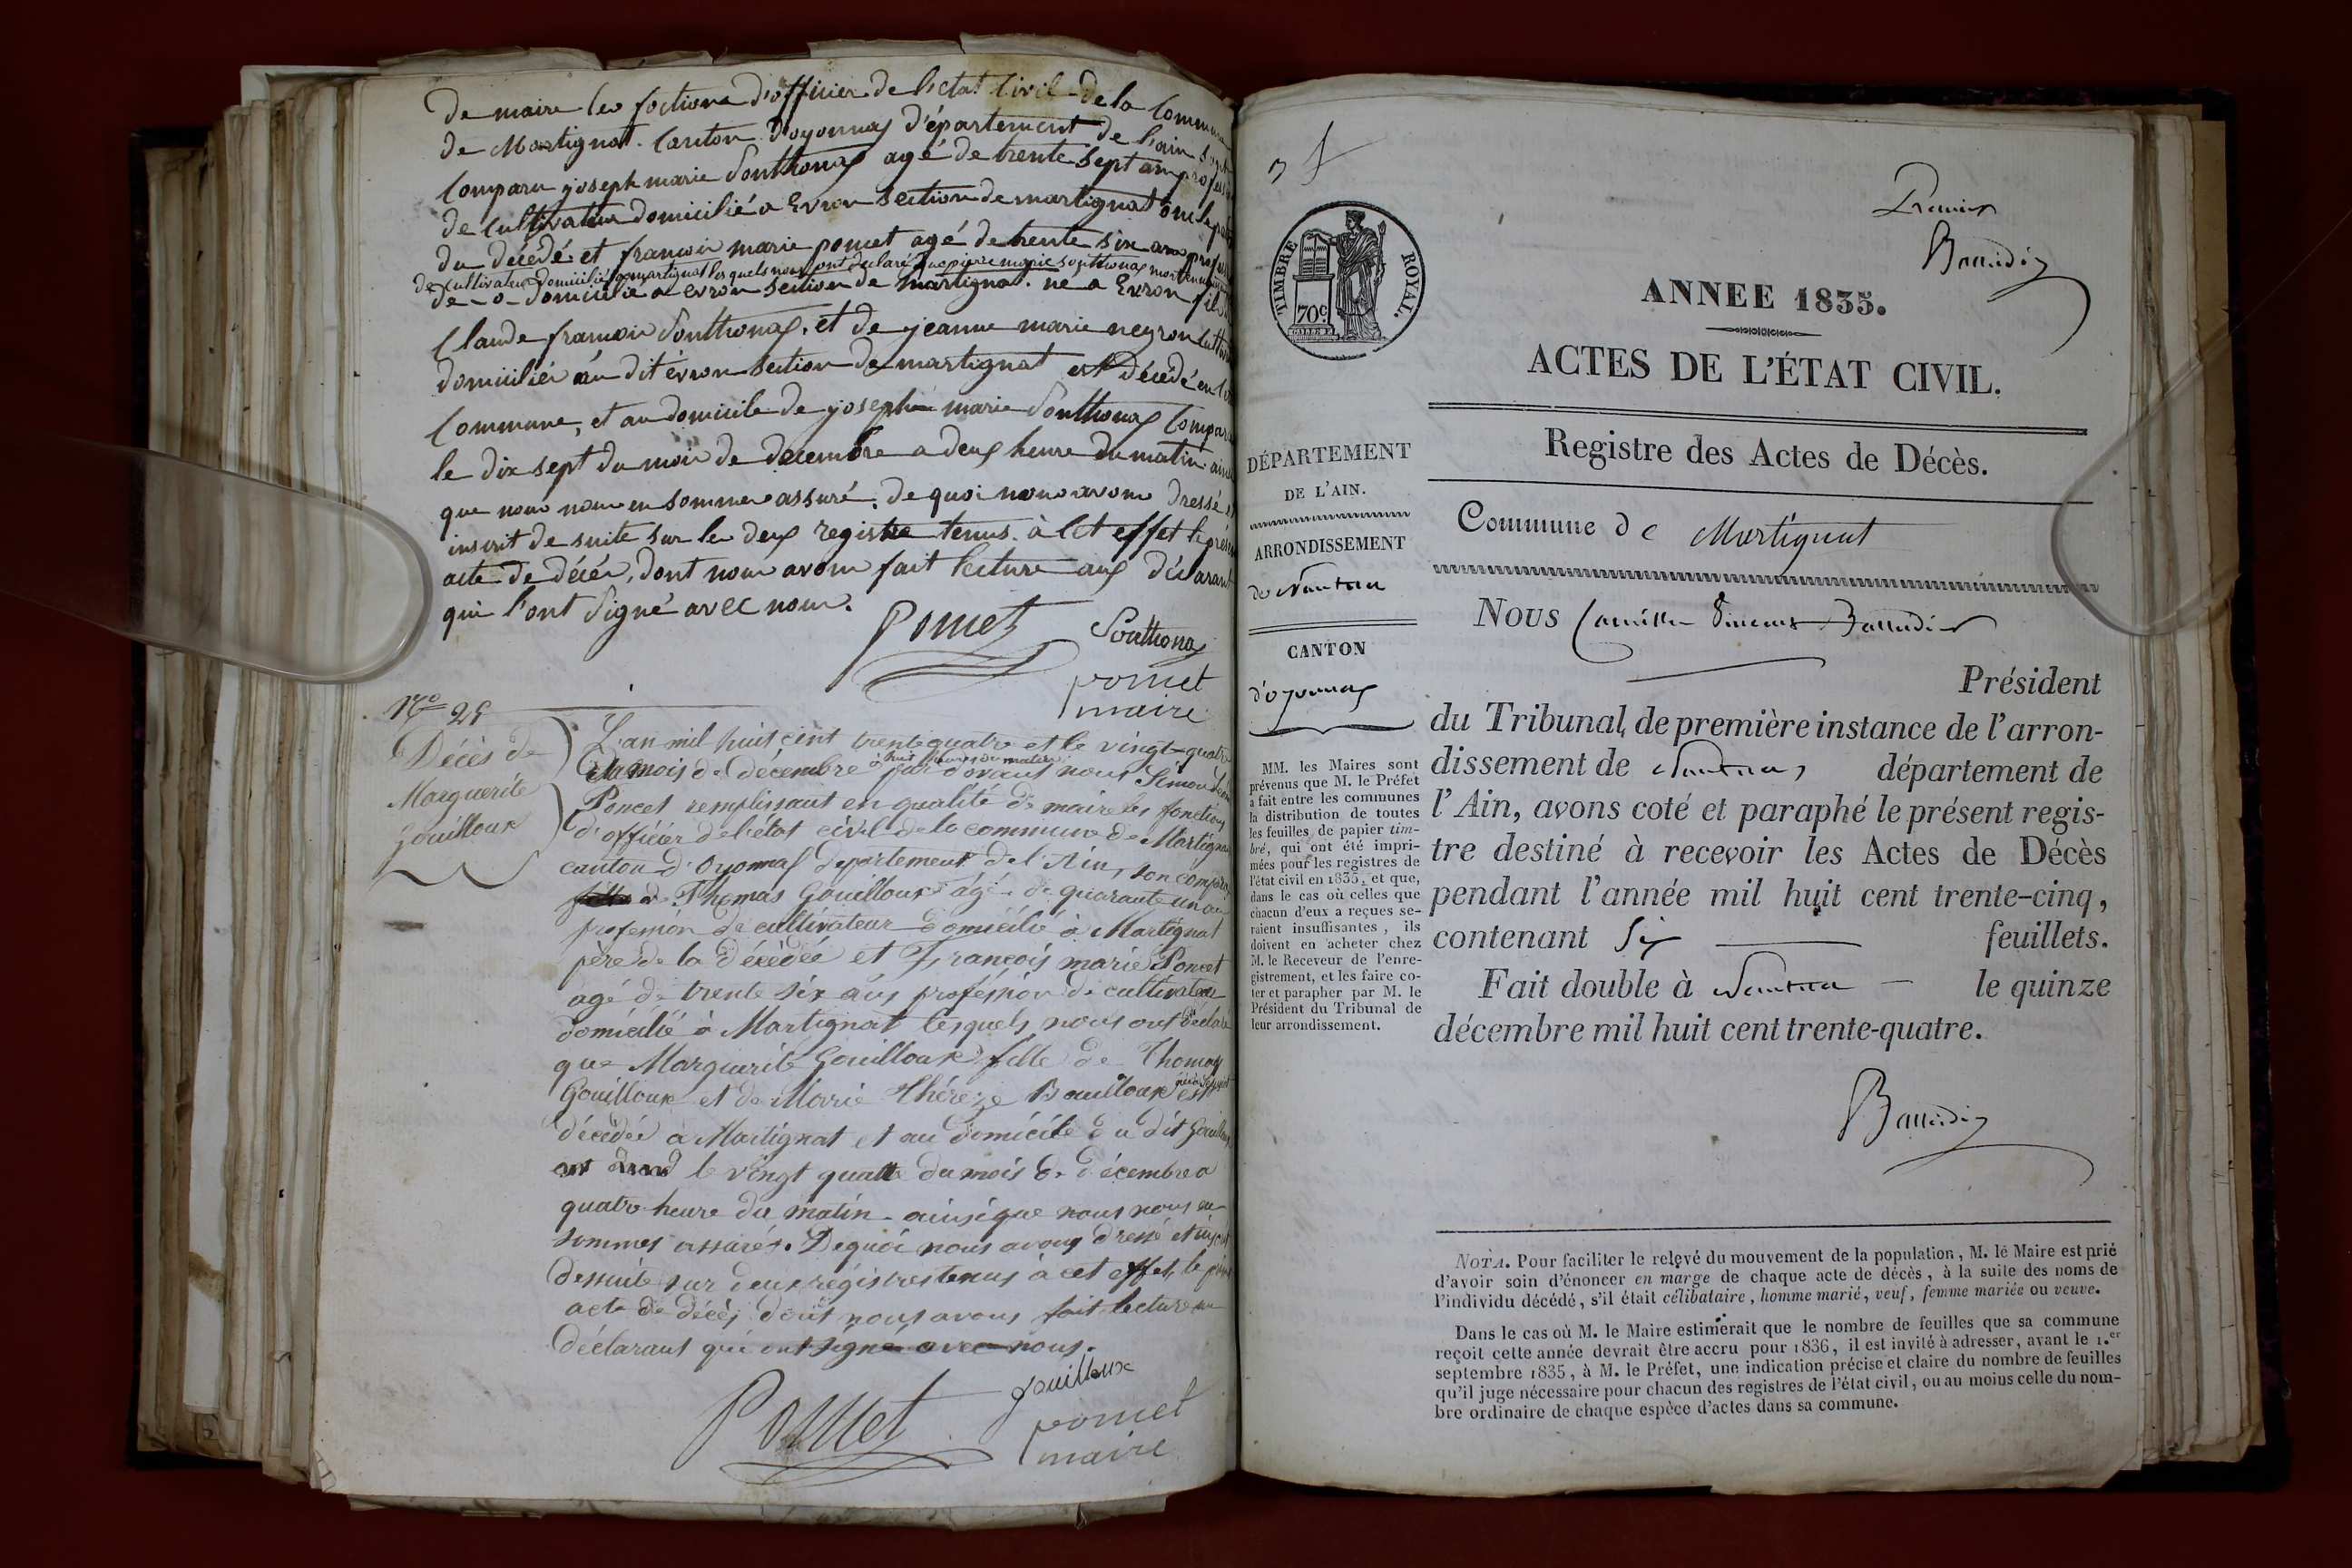 De maire les foctions d'officier de l'etat Civil de la Commune
de Martignat. Canton d'oyonnax département de l'ain sont
Comparu joseph marie Sonthonax agé de trente sept ans profession
de Cultivateur domicilié a Evron section de martignat oncle
du décédé et francois marie poncet agé de trente six ans
de cultivateur domicilié a martignat lesquels nous ont declaré que pierre marie Sonthonax
de -o- domicilié a evron section de martignat. né a Evron fils de
Claude francois Sonthonax, et de jeanne marie negron
domiciliés au dit évron section de martignat est décédé en
Commune, et au domicile de joseph marie Sonthonax Comparant
le dix sept du mois de decembre a deux heure du matin ainsi
que nous nous en sommes assuré. de quoi nous avons dressé et
inscrit de suite sur les deux registre tenus à cet effet le présent
acte de décès, dont nous avons fait lecture aux déclarant
qui l'ont signé avec nous.
Poncet Sonthonax
poncet
maire
N.o 25
Décès de
Marguerite
Gouilloux
L'an mil huit cent trente quatre et le vingt quatre
du mois de décembre à huit heures du matin par devant nous Simon
Poncet remplissant en qualité de maire les fonctions
d'officiér de l'état civil de la commune de Martignat
canton d'Oyonnax département de l'Ain, son comparu
Thomas Gouilloux âgé de quarante un ans
profession de cultivateur domicilié à Martignat
père de la décédée et François marie Poncet
agé de trente six ans profession de cultivateur
domicilié à Martignat lesquels nous ont déclaré
que Marguerite Gouilloux fille de Thomas
Gouilloux et de Marie Théreze Bouilloux est
décédée à Martignat et au domicile du dit Gouilloux
le vingt quatre du mois de décembre a
quatre heure du matin ainsi que nous nous en
sommes assurés. De quoi nous avons dressé et inscrit
de suite sur deux régistres tenus à cet effet, le présent
acte de décès dont nous avons fait lecture au
déclarans qui ont signé avec nous.
Poncet gouilloux
poncet
maire
Premier
Ballidier
TIMBRE ROYAL.
70c.
ANNEE 1835.
ACTES DE L'ÉTAT CIVIL.
Registre des Actes de Décès.
DÉPARTEMENT
DE L'AIN.
ARRONDISSEMENT
de Nantua
CANTON
d'oyonnax
MM. les Maires sont
prévenus que M. le Préfet
a fait entre les communes
la distribution de toutes
les feuilles de papier tim-
bré, qui ont été impri-
mées pour les registres de
l'état civil en 1835, et que,
dans le cas où celles que
chacun d'eux a reçues se-
raient insuffisantes, ils
doivent en acheter chez
M. le Receveur de l'enre-
gistrement, et les faire co-
ter et parapher par M. le
Président du Tribunal de
leur arrondissement.
Commune de Martignat
Nous Camille
Président
du Tribunal de première instance de l'arron-
dissement de Nantua, département de
l'Ain, avons coté et paraphé le présent regis-
tre destiné à recevoir les Actes de Décès
pendant l'année mil huit cent trente-cinq,
contenant Six feuillets.
Fait double à Nantua le quinze
décembre mil huit cent trente-quatre.
NOTA. Pour faciliter le relevé du mouvement de la population, M. le Maire est prié
d'avoir soin d'énoncer en marge de chaque acte de décès, à la suite des noms de
l'individu décédé, s'il était célibataire, homme marié, veuf, femme mariée ou veuve.
Dans le cas où M. le Maire estimerait que le nombre de feuilles que sa commune
reçoit cette année devrait être accru pour 1836, il est invité à adresser, avant le 1.er
septembre 1835, à M. le Préfet, une indication précise et claire du nombre de feuilles
qu'il juge nécessaire pour chacun des registres de l'état civil, ou au moins celle du nom-
bre ordinaire de chaque espèce d'actes dans sa commune.